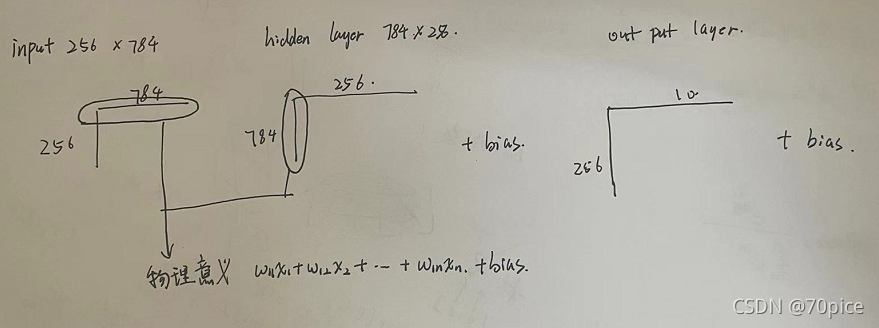 input 256 × 784
hidden layer 784 × 256.
out put layer.
784
256
256.
784
+ bias.
10
256
+ bias.
物理意义 w11x1 + w12x2 + ... + w1nxn. + bias.
CSDN @70pice